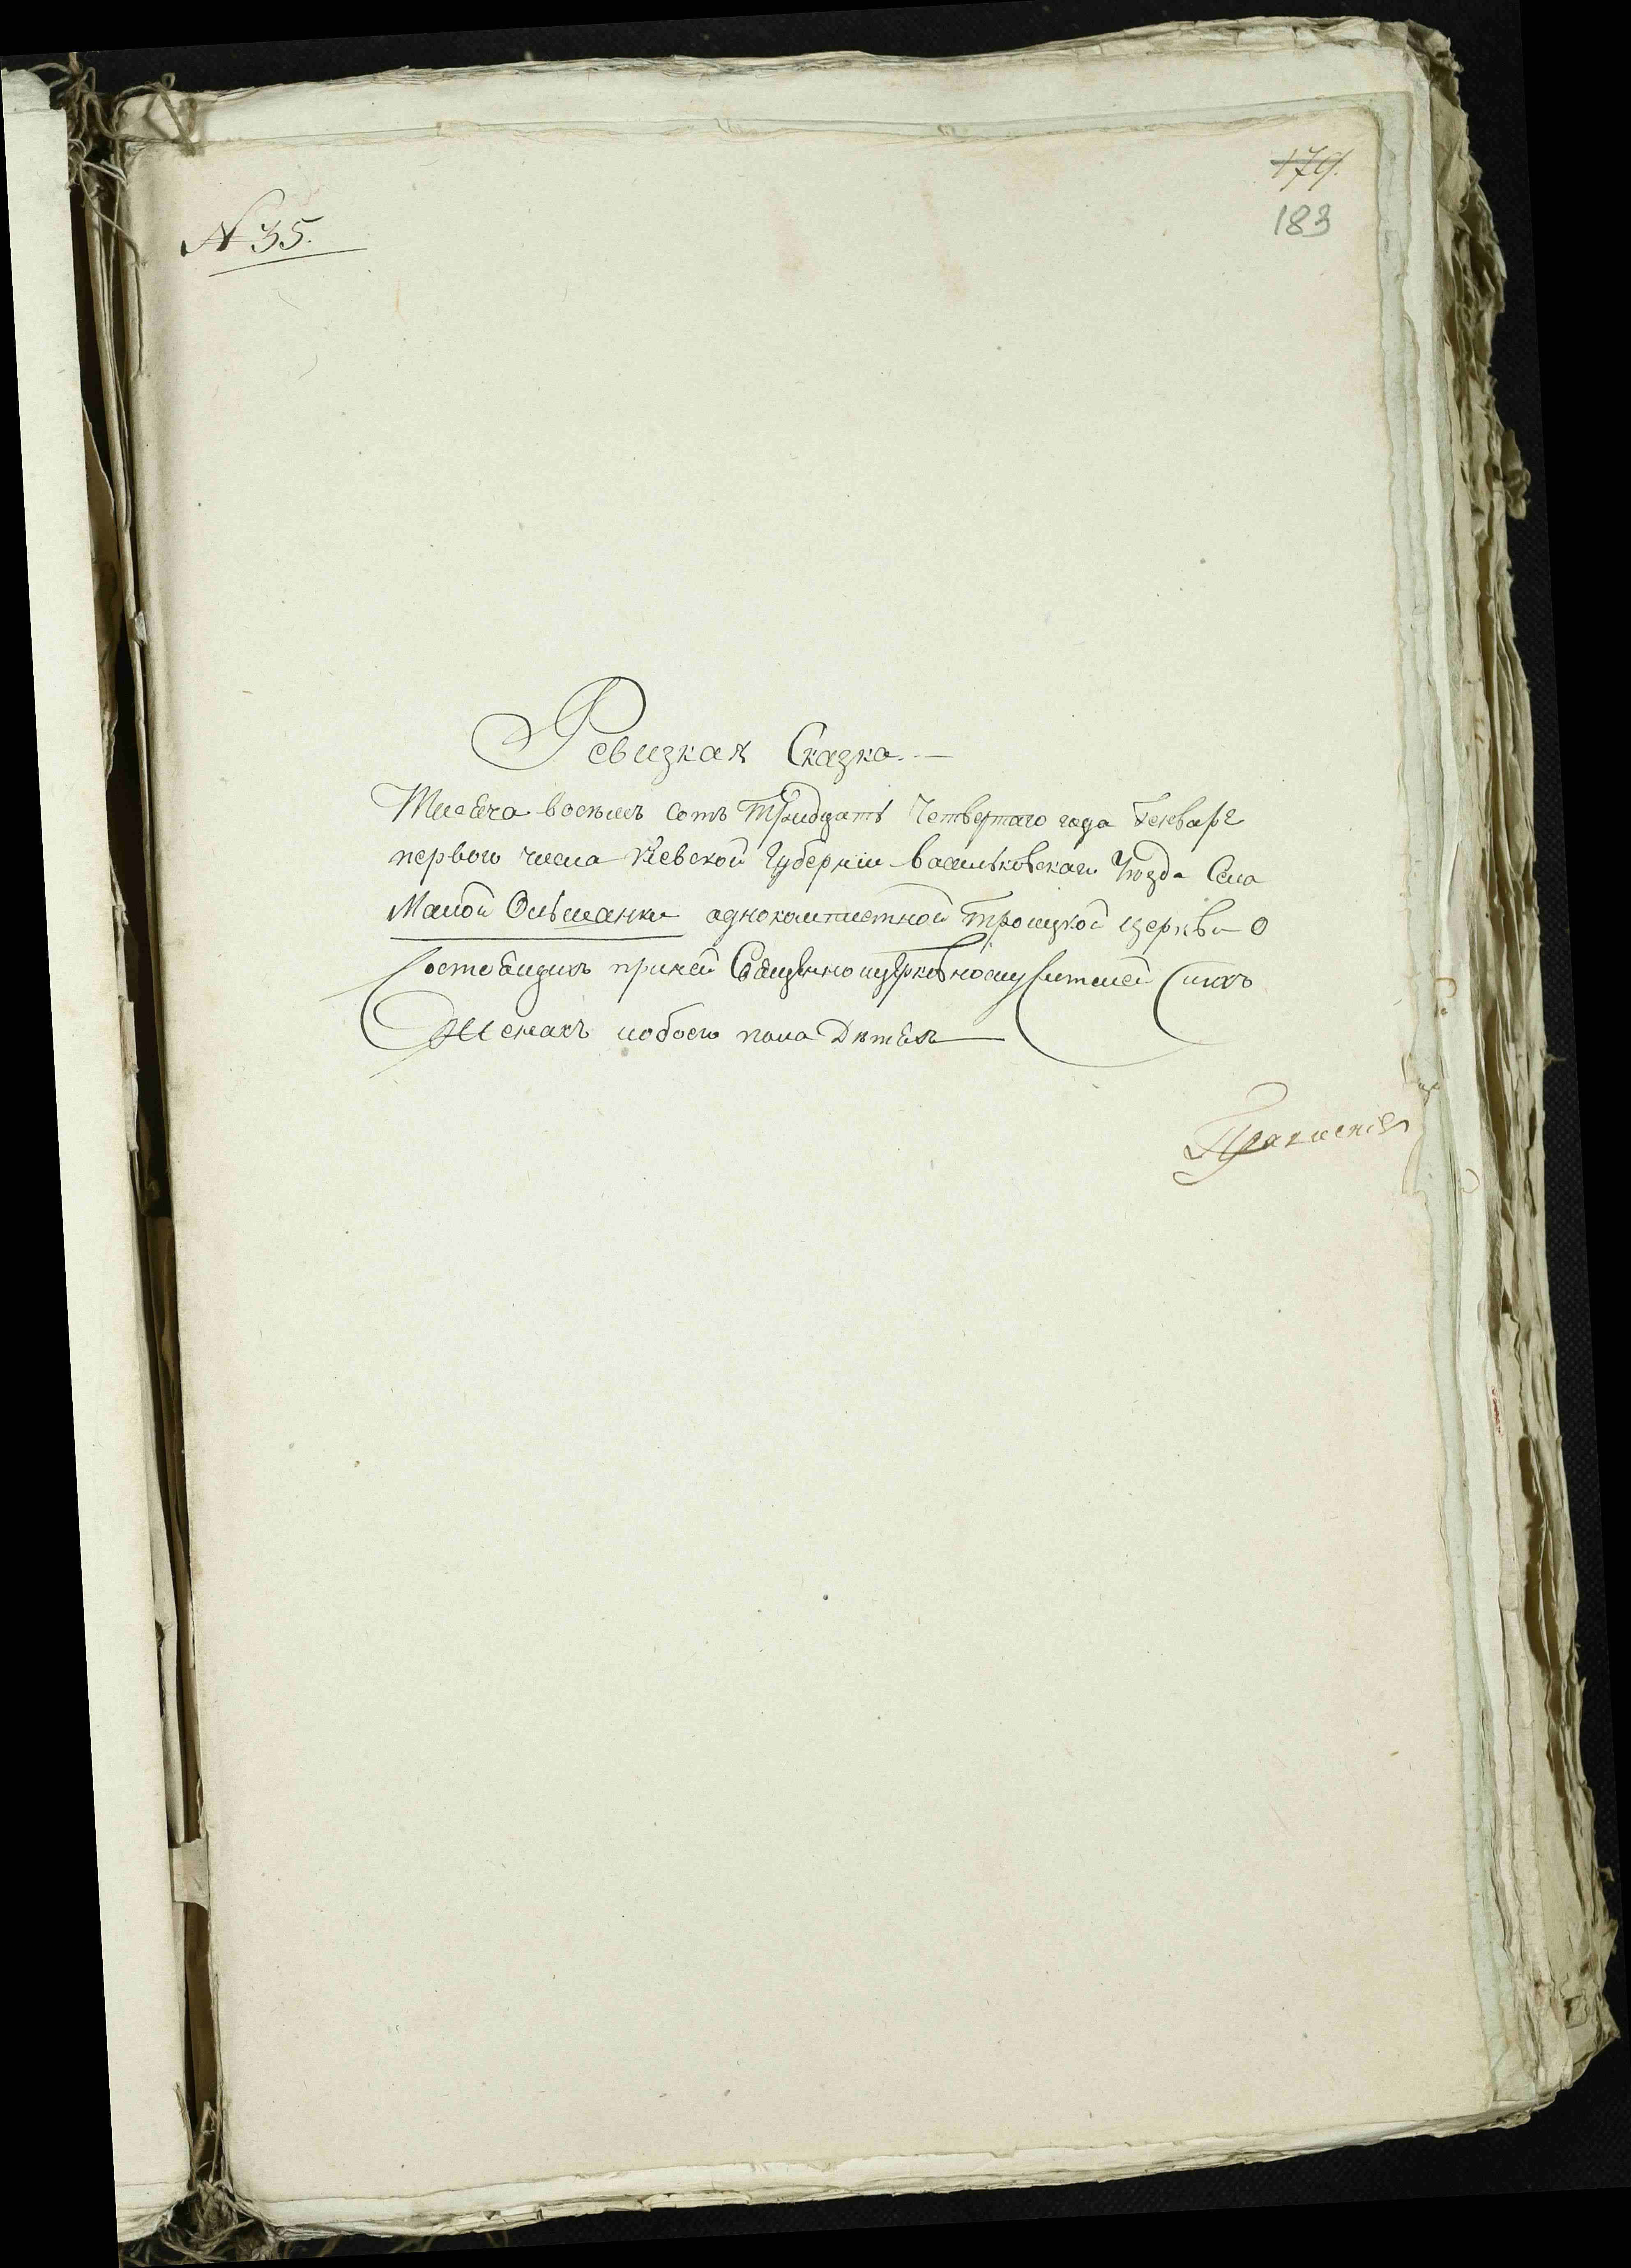 179.
183
№ 35.
Ревизкая Сказка.
Тисеча восемъ сотъ тридцать Четвертаго года Генваря
первого числа Киевской Губернии Васильковскаго Уезда Села
Малой Ольшанки однокомплетной Троицкой церкви о
состоящихъ приней Священноцерковнослужителей ихъ
Женахъ иобоего пола Дѣтехъ